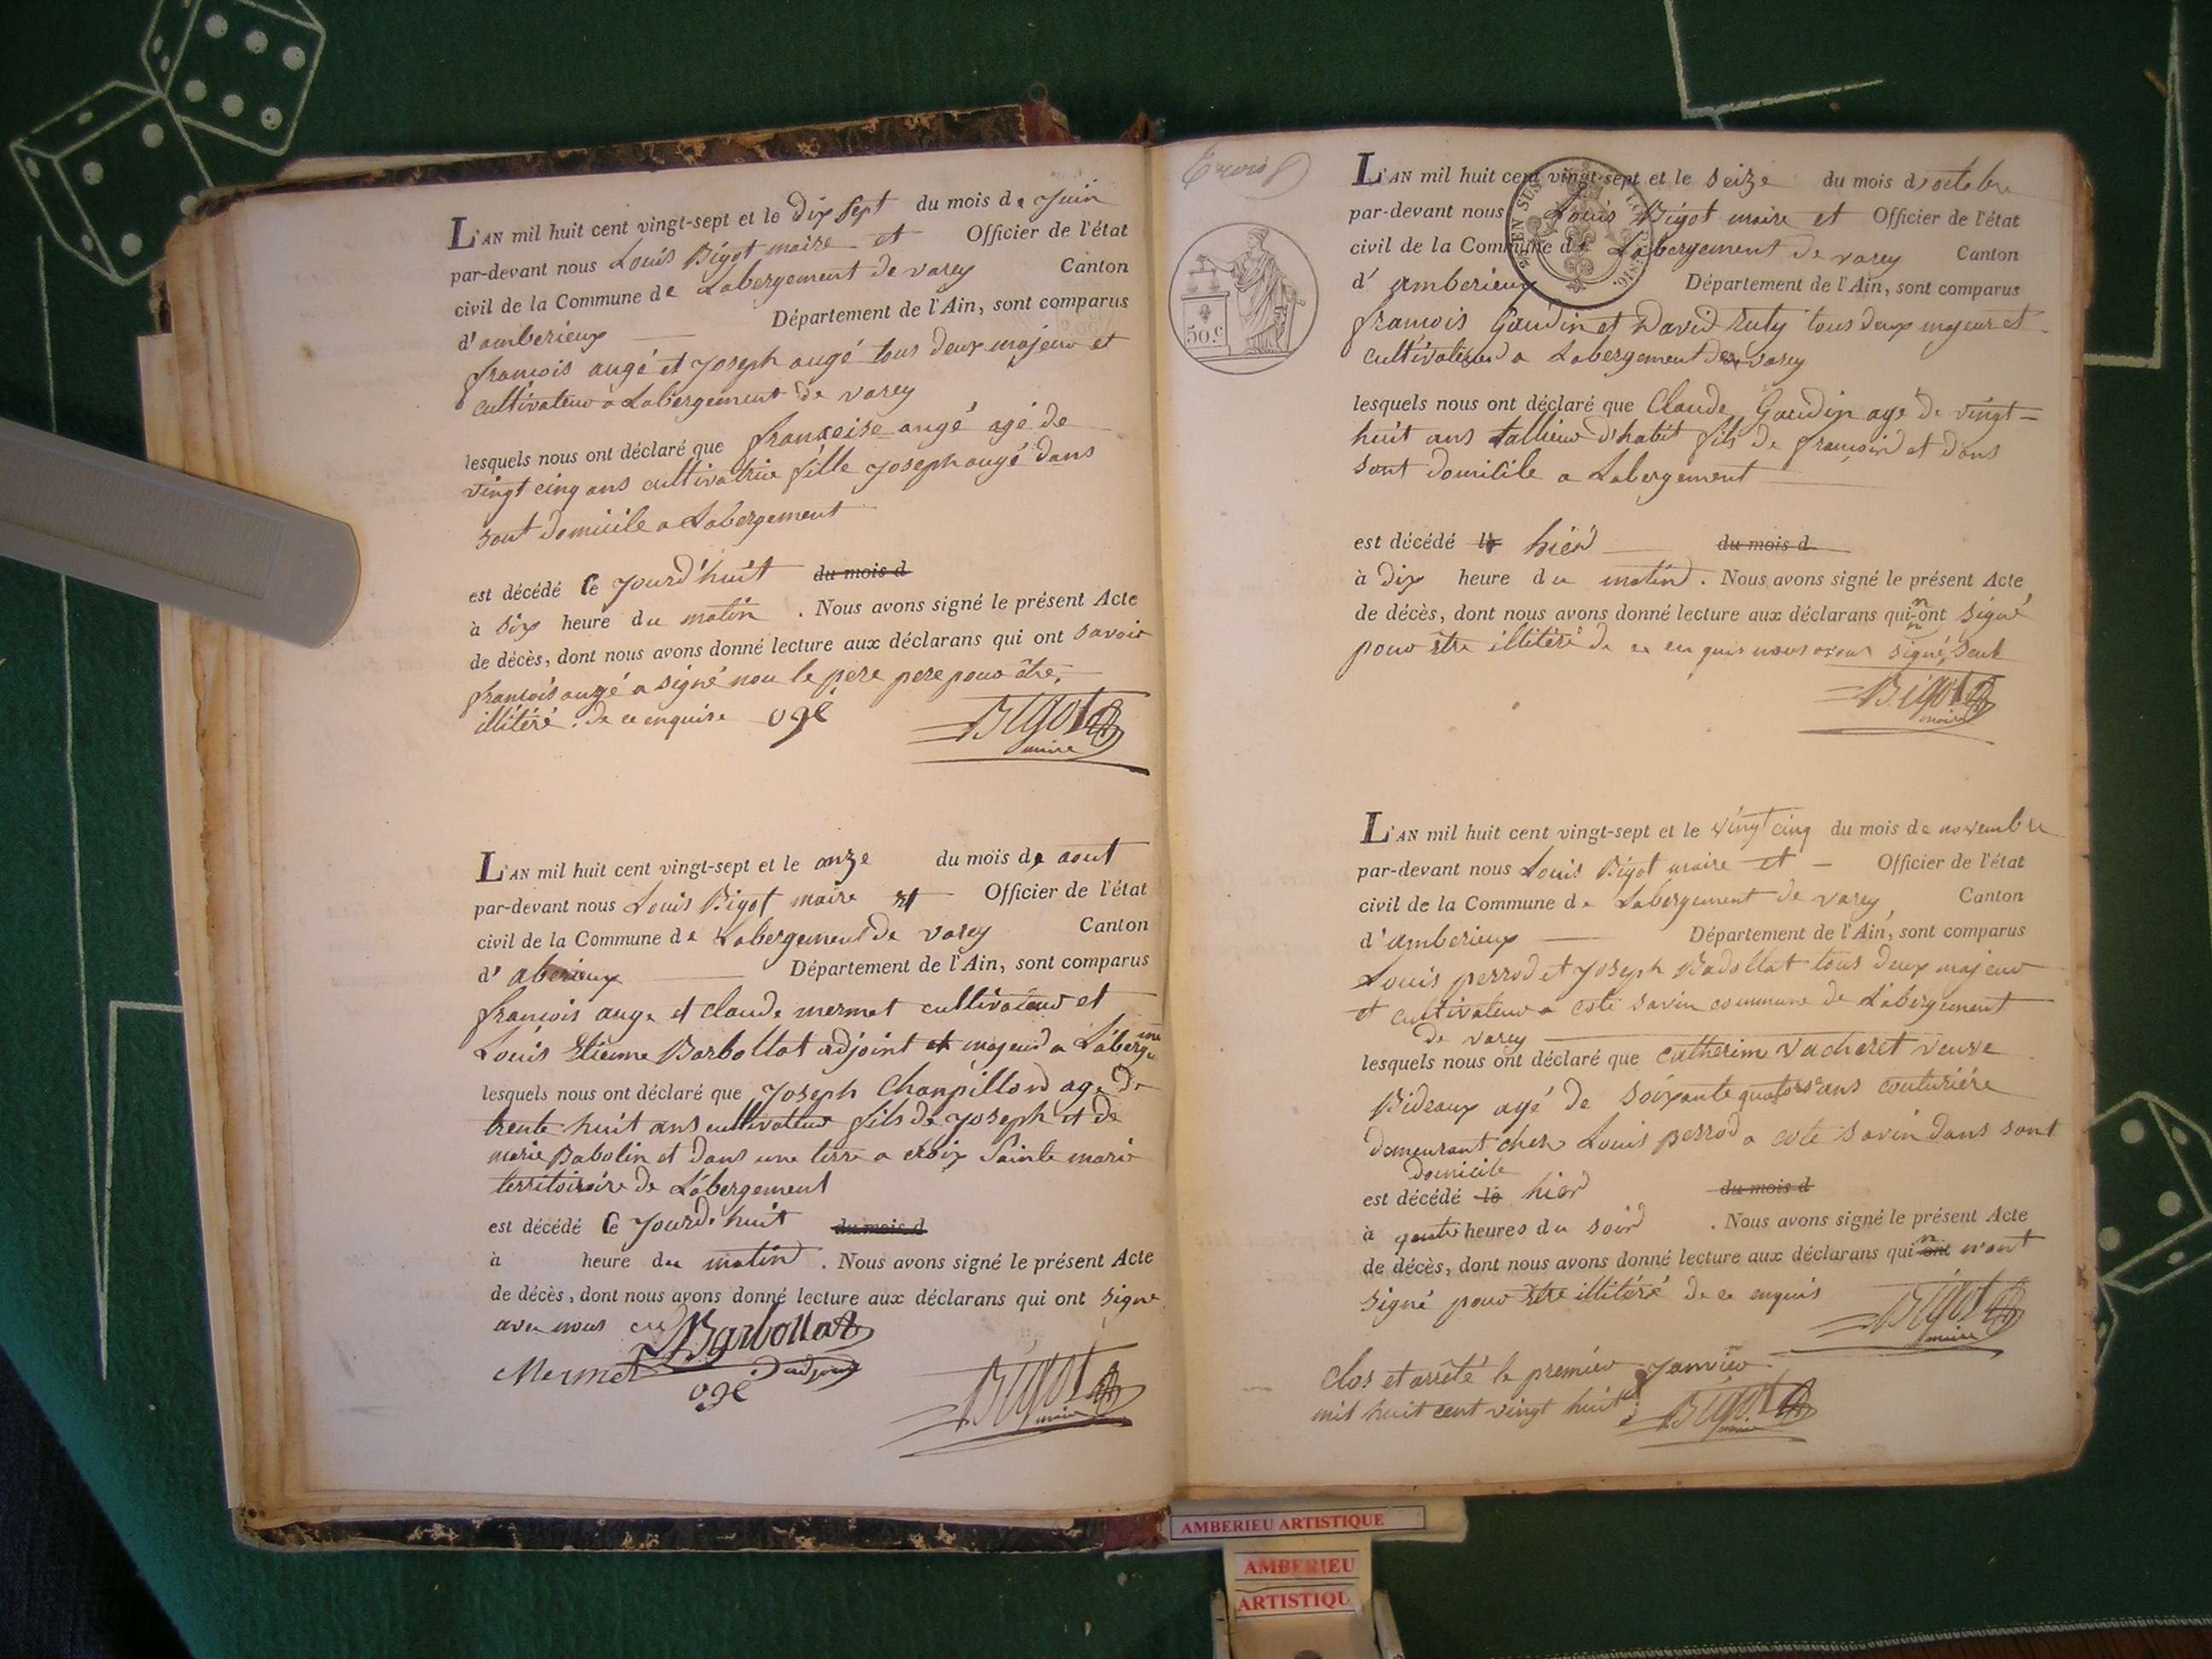 L'AN mil huit cent vingt-sept et le dix sept du mois de Juin
par-devant nous Louis Bigot maire et Officier de l'état
civil de la Commune de Labergement de varey Canton
d'amberieux Département de l'Ain, sont comparus
francois augé et Joseph augé tous deux majeur et
cultivateur a Labergement de varey
lesquels nous ont déclaré que francoise augé agé de
vingt cinq ans cultivatrice fille Joseph augé dans
sont domicile a Labergement
est décédé Ce Jourd'huit du mois d
à six heure du matin . Nous avons signé le présent Acte
de décès, dont nous avons donné lecture aux déclarans qui ont savoir
francois augé a signé non le pere pere pour être
illitéré de ce enquise ogé Bigot
maire
L'AN mil huit cent vingt-sept et le onze du mois de aout
par-devant nous Louis Bigot maire et Officier de l'état
civil de la Commune de Labergement de varey Canton
d' aberieux Département de l'Ain, sont comparus
francois auge et claude mermet cultivateur et
Louis Etienne Barbollat adjoint et majeur a Labergement
lesquels nous ont déclaré que Joseph Chanpillon age de
trente huit ans cultivateur fils de Joseph et de
marie Babolin et dans une terre a croix Sainte marie
territoire de Labergement
est décédé Ce Jourd'huit du mois d
à heure du matin . Nous avons signé le présent Acte
de décès, dont nous avons donné lecture aux déclarans qui ont signé
avec nous Barbollat
Mermet adjoint
ogé Bigot
maire
L'AN mil huit cent vingt-sept et le seize du mois d'octobre
par-devant nous Louis Bigot maire et Officier de l'état
civil de la Commune de Labergement de varey Canton
d' amberieux Département de l'Ain, sont comparus
francois Gaudin et David Ruty tous deux majeur et
cultivateur a Labergement de varey
50.c
EN SUS
lesquels nous ont déclaré que Claude Gaudin agé de vingt-
huit ans tallieur d'habit fils de francois et dans
sont domicile a Labergement
est décédé le hier du mois d
à dix heure du matin . Nous avons signé le présent Acte
de décès, dont nous avons donné lecture aux déclarans qui n'ont signé
pour être illitéré de ce enquis nous avons signé seul
Bigot
maire
L'AN mil huit cent vingt-sept et le vingt cinq du mois de novembre
par-devant nous Louis Bigot maire et Officier de l'état
civil de la Commune de Labergement de varey Canton
d'amberieux Département de l'Ain, sont comparus
Louis perrod et Joseph Badollat tous deux majeur
et cultivateur a coté savin commune de Labergement
de varey
lesquels nous ont déclaré que catherine vacheret veuve
Bideaux agé de soixante quatorse ans couturière
demeurant cher Louis perrod a coté savin dans sont
domicile
est décédé le hier du mois d
à quatre heures du soir . Nous avons signé le présent Acte
de décès, dont nous avons donné lecture aux déclarans qui ont n'ont
signé pour être illitéré de ce enquis Bigot
maire
Clos et arrêté le premier Janvier
mil huit cent vingt huit Bigot
maire
AMBERIEU ARTISTIQUE
AMBERIEU
ARTISTIQU